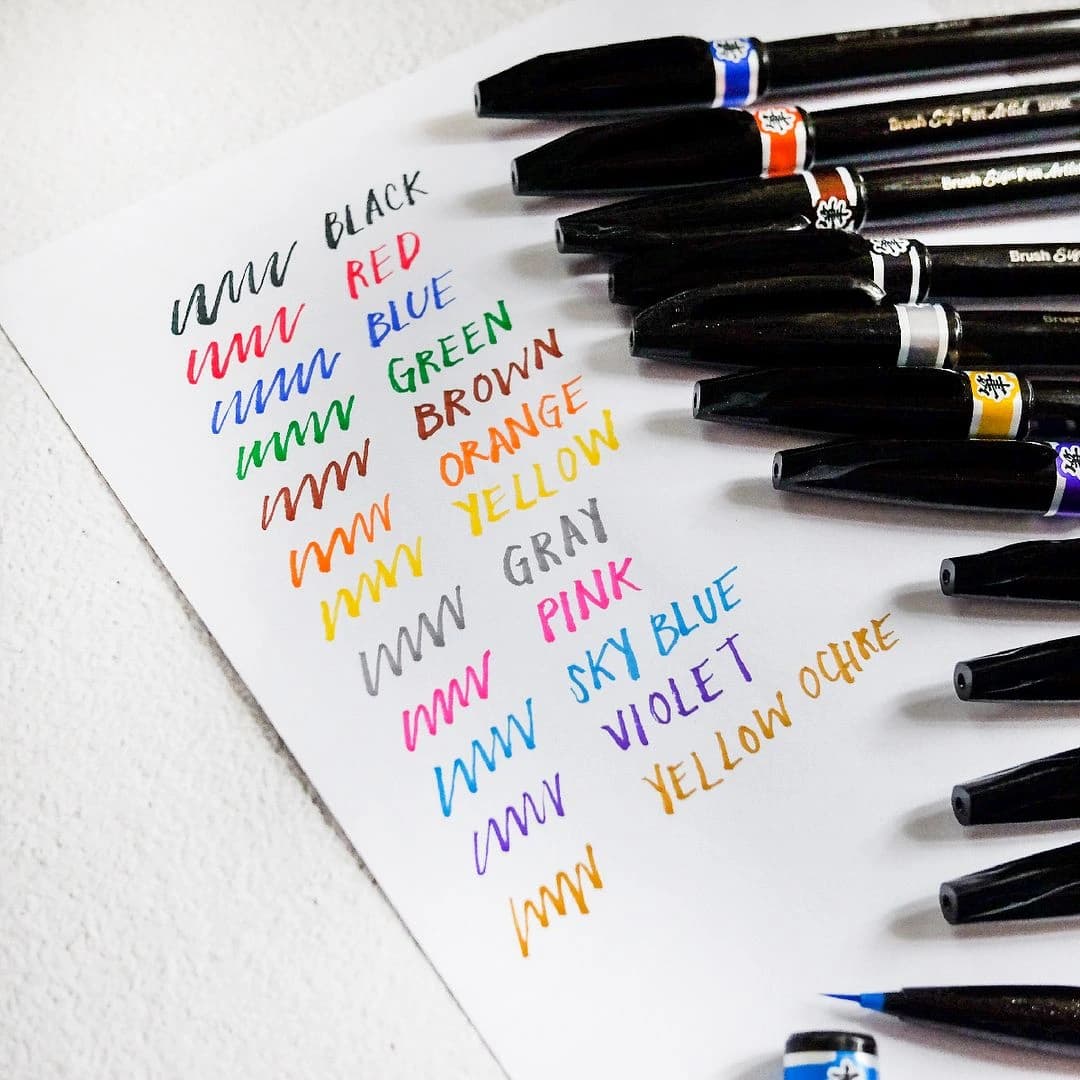 BLACK
RED
BLUE
GREEN
BROWN
ORANGE
YELLOW
GRAY
PINK
SKY BLUE
VIOLET
YELLOW OCHRE
Brush Sign Pen Artist
Brush Sign Pen Artist
Brush Sign
Brush
筆
筆
筆
筆
筆
筆